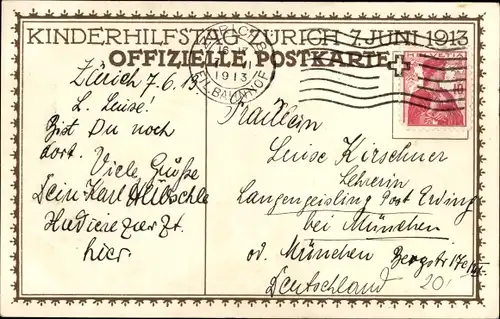 KINDERHILFSTAG ZÜRICH 7. JUNI 1913
OFFIZIELLE POSTKARTE
1913
BAHNHOF
HELVETIA
10
Zürich 7.6.13
L. Luise!
Bist Du noch
dort. Viele Grüße
Dein Karl
zur Zt.
hier.
Fräulein
Luise Kirschner
Lehrerin
Langengeisling Post Erding
bei München
od. München Bergstr 17c
Deutschland 20